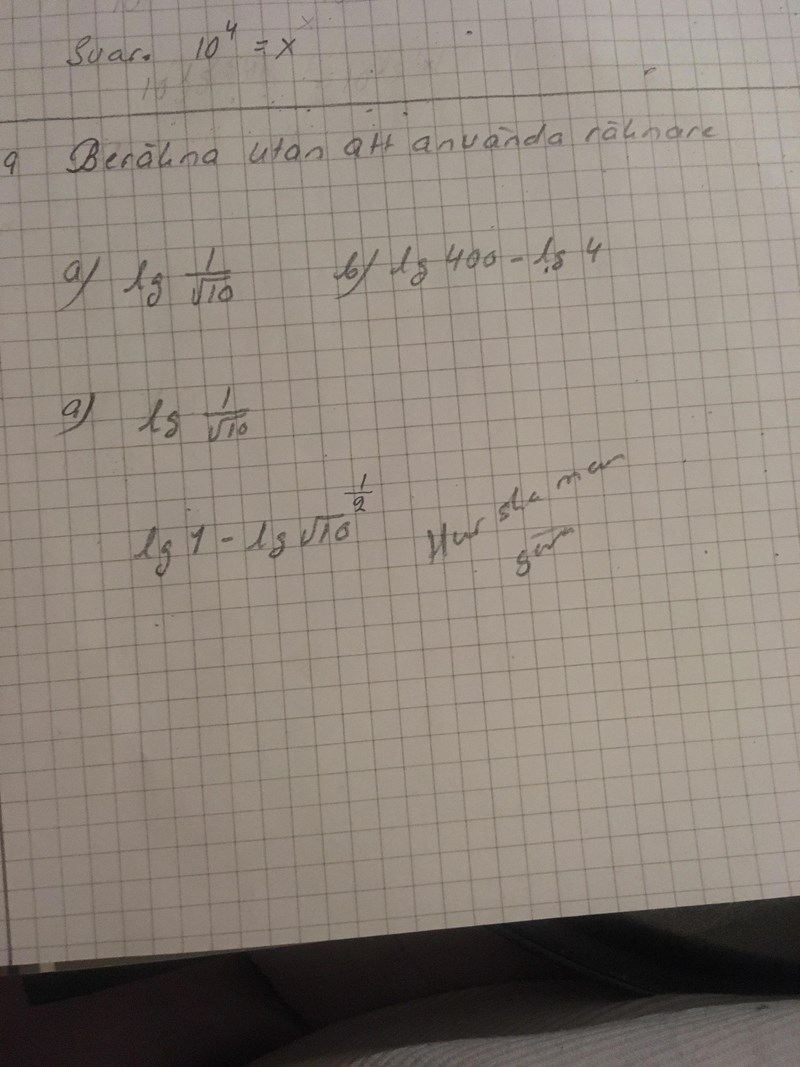 Svar. 10^4 = x
9 Beräkna utan att använda räknare
a) lg 1/√10 b) lg 400 - lg 4
a) lg 1/√10
lg 1 - lg √10^(1/2) Hur ska man
göra